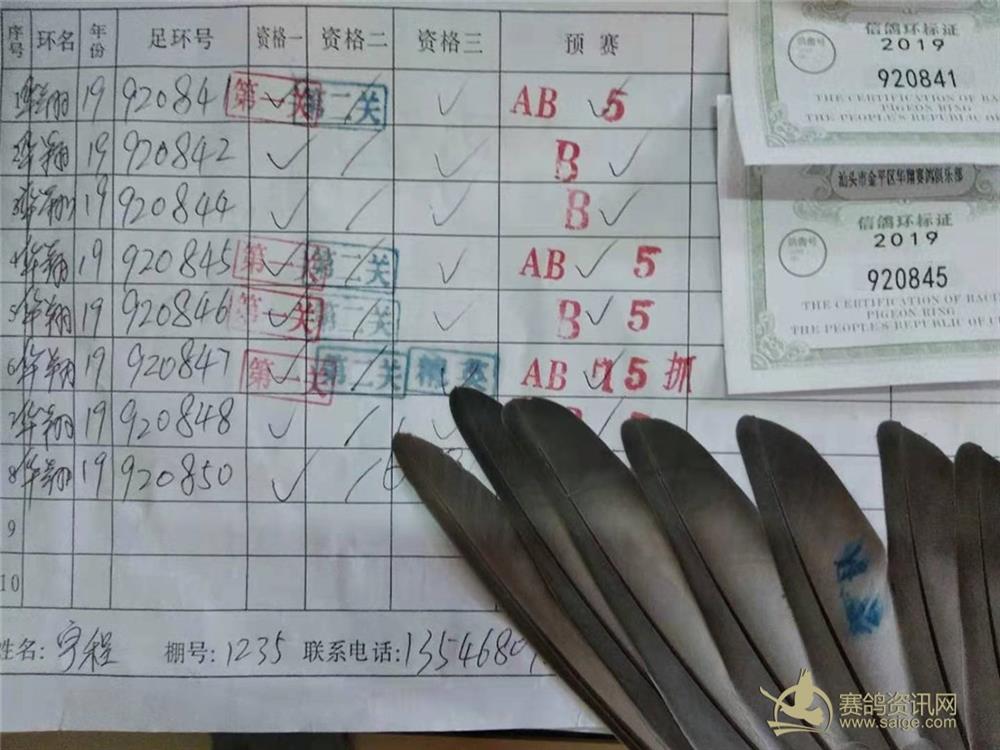 序号 环名 年份 足环号 资格一 资格二 资格三 预赛
1 华翔 19 920841 第一关 ✓ 第二关 / ✓ AB ✓ 5
2 华翔 19 920842 ✓ / ✓ B ✓
3 华翔 19 920844 ✓ / ✓ B ✓
4 华翔 19 920845 第一关 ✓ 第二关 / ✓ AB ✓ 5
5 华翔 19 920846 第一关 ✓ 第二关 / ✓ B ✓ 5
6 华翔 19 920847 第一关 ✓ 第二关 / 精英 ✓ AB ✓ 5 抓
7 华翔 19 920848 ✓ / ✓
8 华翔 19 920850 ✓ /
9
10
姓名: 宇程 棚号: 1235 联系电话: 1354680
信鸽环标证
2019
920841
THE CERTIFICATION OF RAC
PIGEON RING
THE PEOPLE'S REPUBLIC OF
汕头市金平区华翔赛鸽俱乐部
信鸽环标证
2019
920845
THE CERTIFICATION OF RACI
PIGEON RING
THE PEOPLE'S REPUBLIC OF C
赛鸽资讯网
www.saige.com